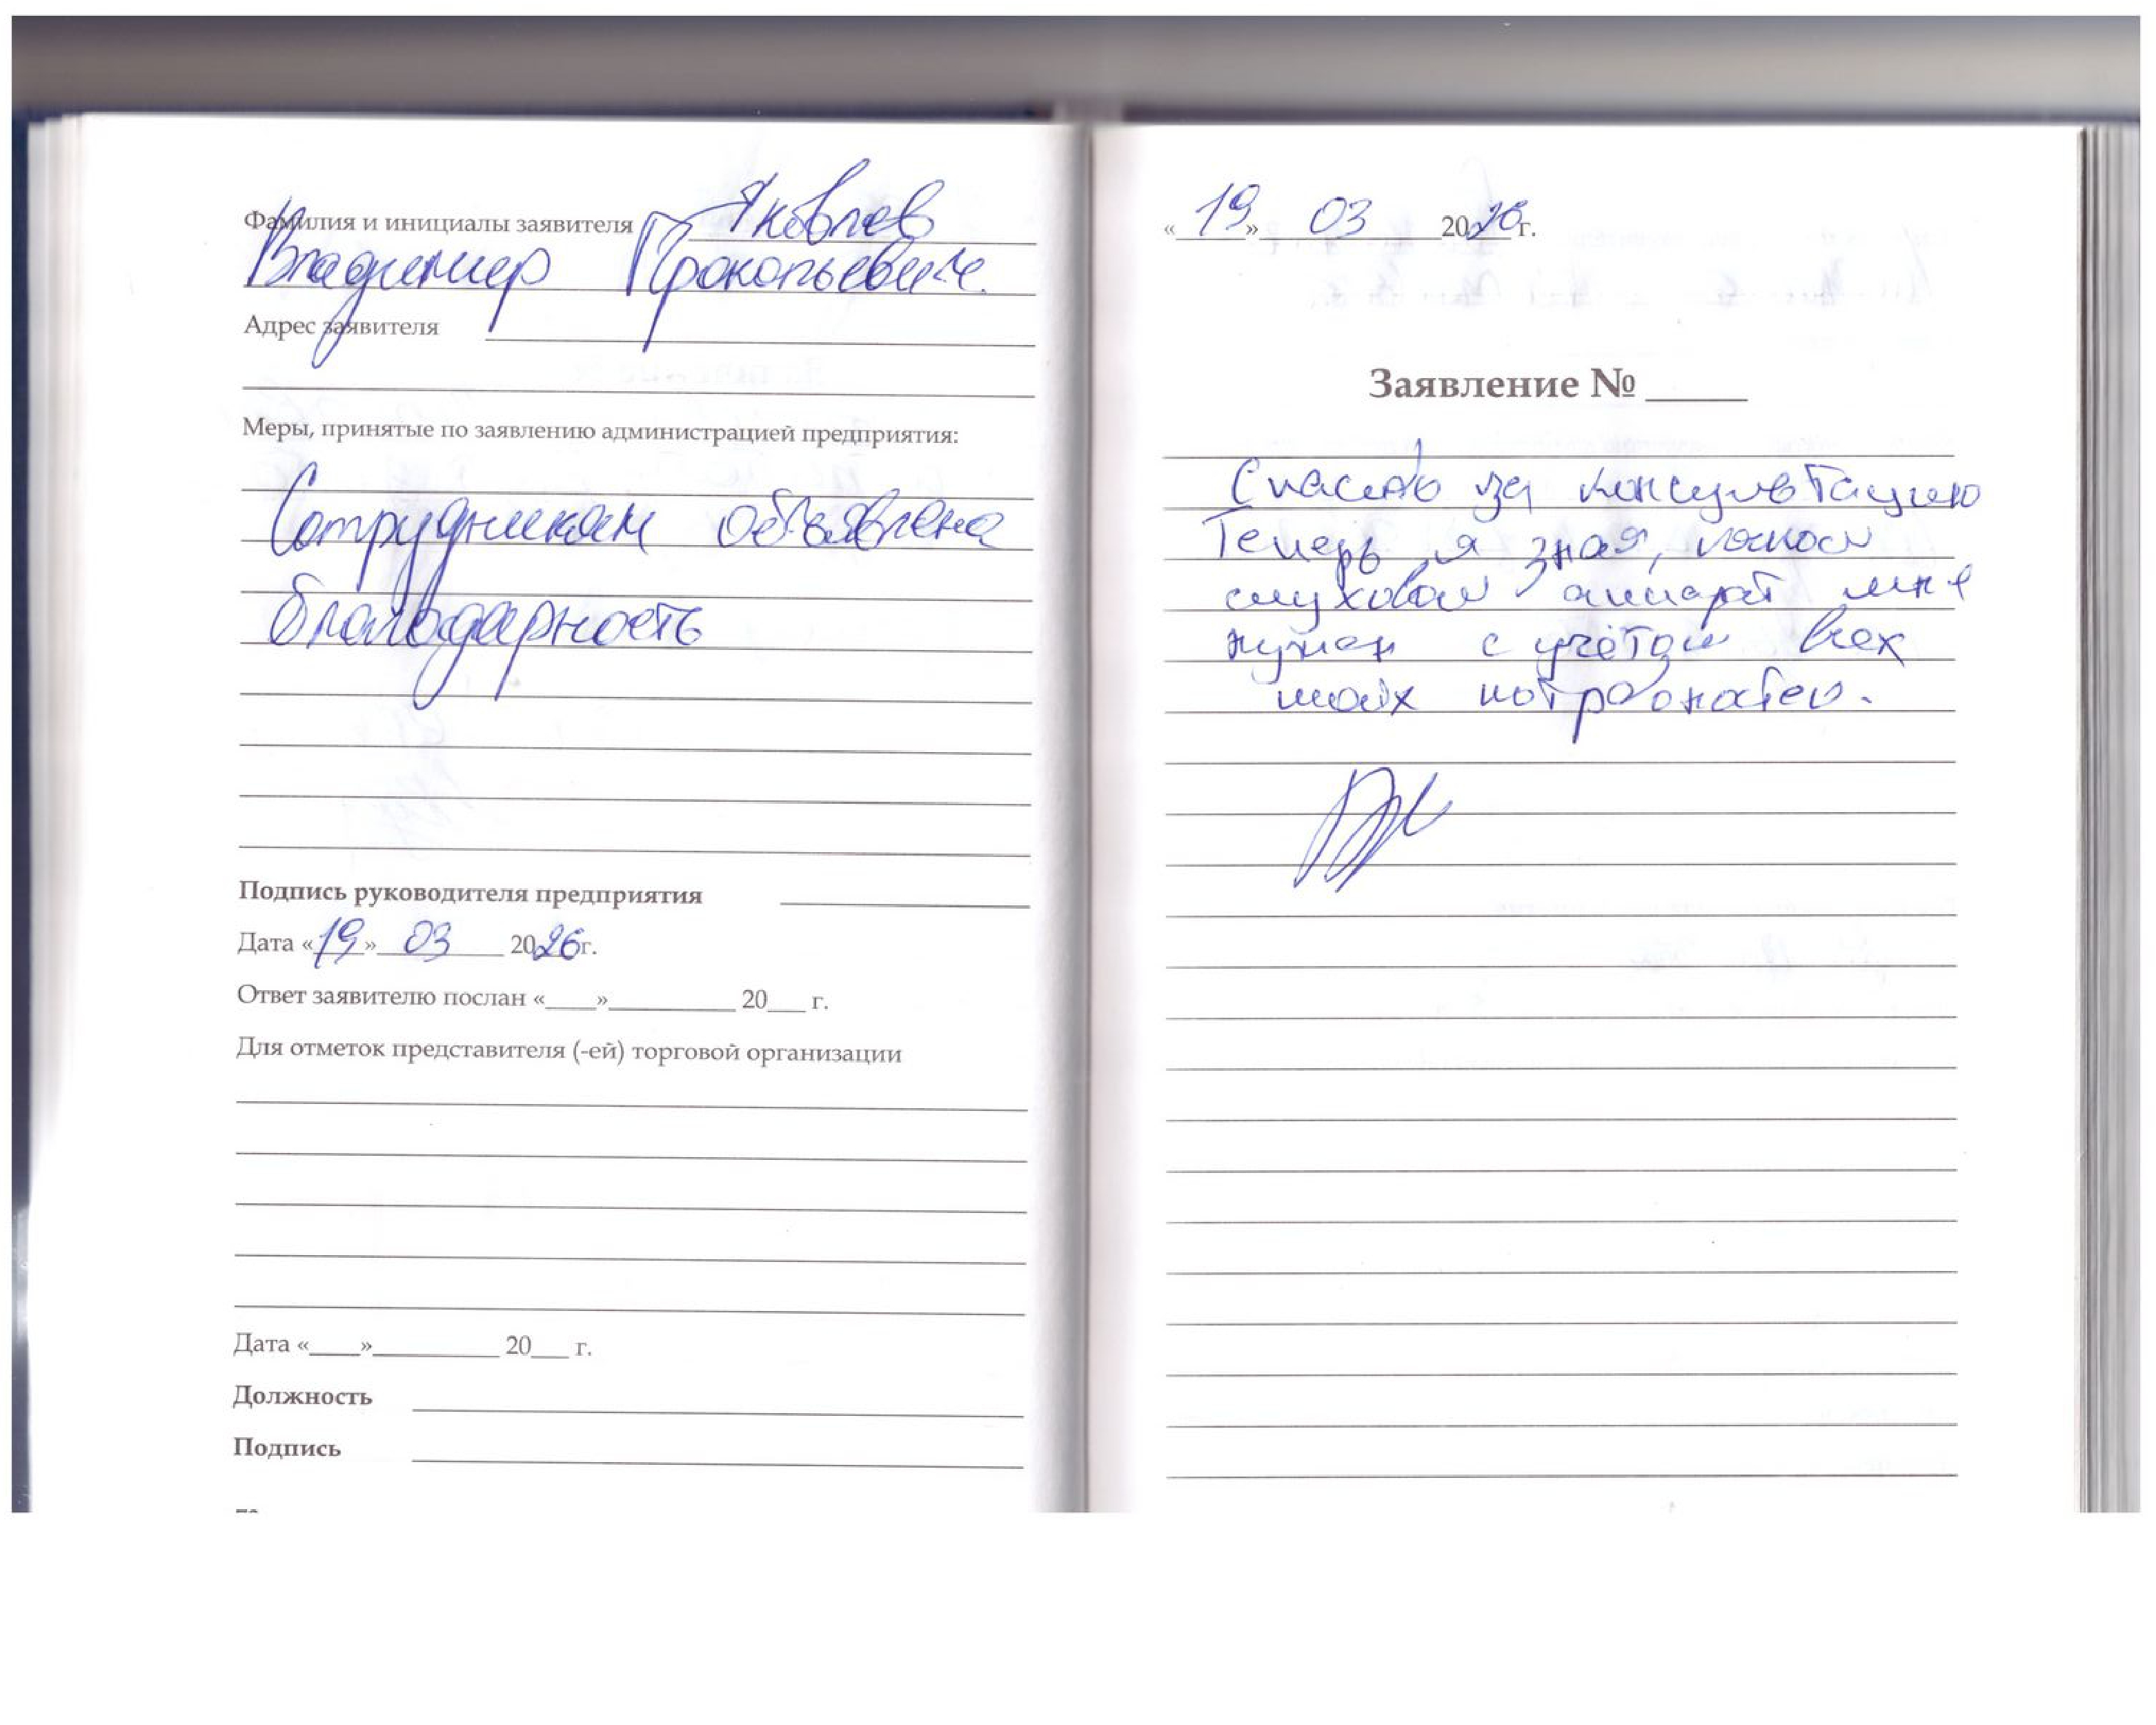 Фамилия и инициалы заявителя Яковлев
Владимир Прокопьевич.
Адрес заявителя
Меры, принятые по заявлению администрацией предприятия:
Сотрудникам объявлена
благодарность
Подпись руководителя предприятия
Дата «19» 03 2026 г.
Ответ заявителю послан «____»__________ 20___ г.
Для отметок представителя (-ей) торговой организации
Дата «____»__________ 20___ г.
Должность
Подпись
«19» 03 2026 г.
Заявление № _____
Спасибо за консультацию
Теперь я знаю, какой
слуховой аппарат мне
нужен с учётом всех
моих потребностей.